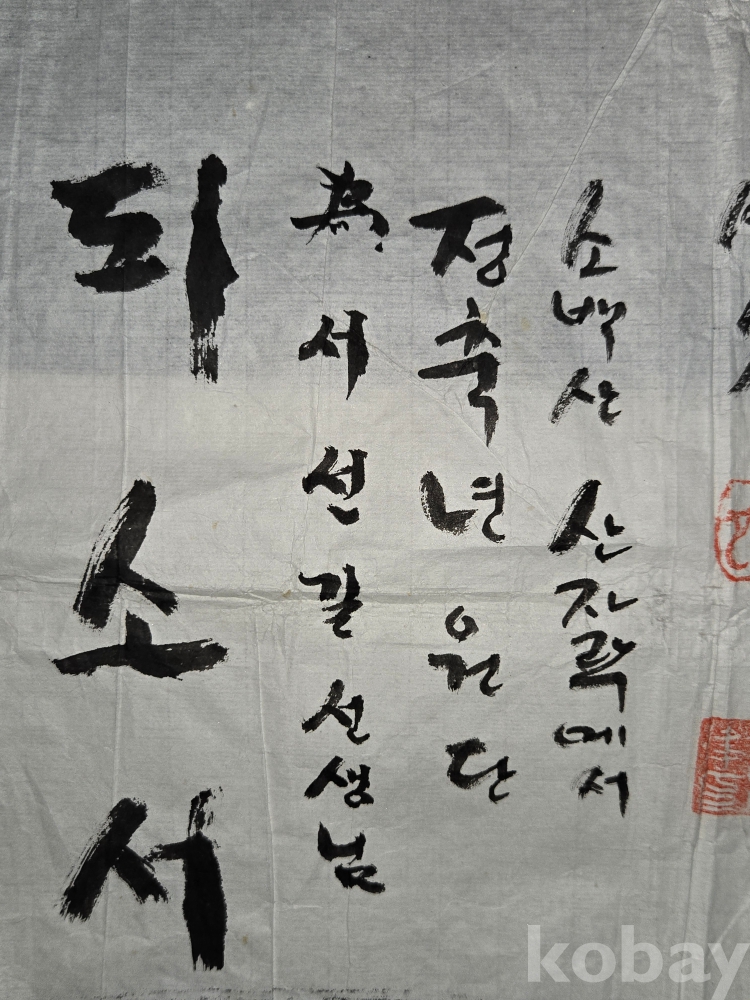 되소서
為 서선길 선생님
정축년 원단
소백산 산자락에서
kobay